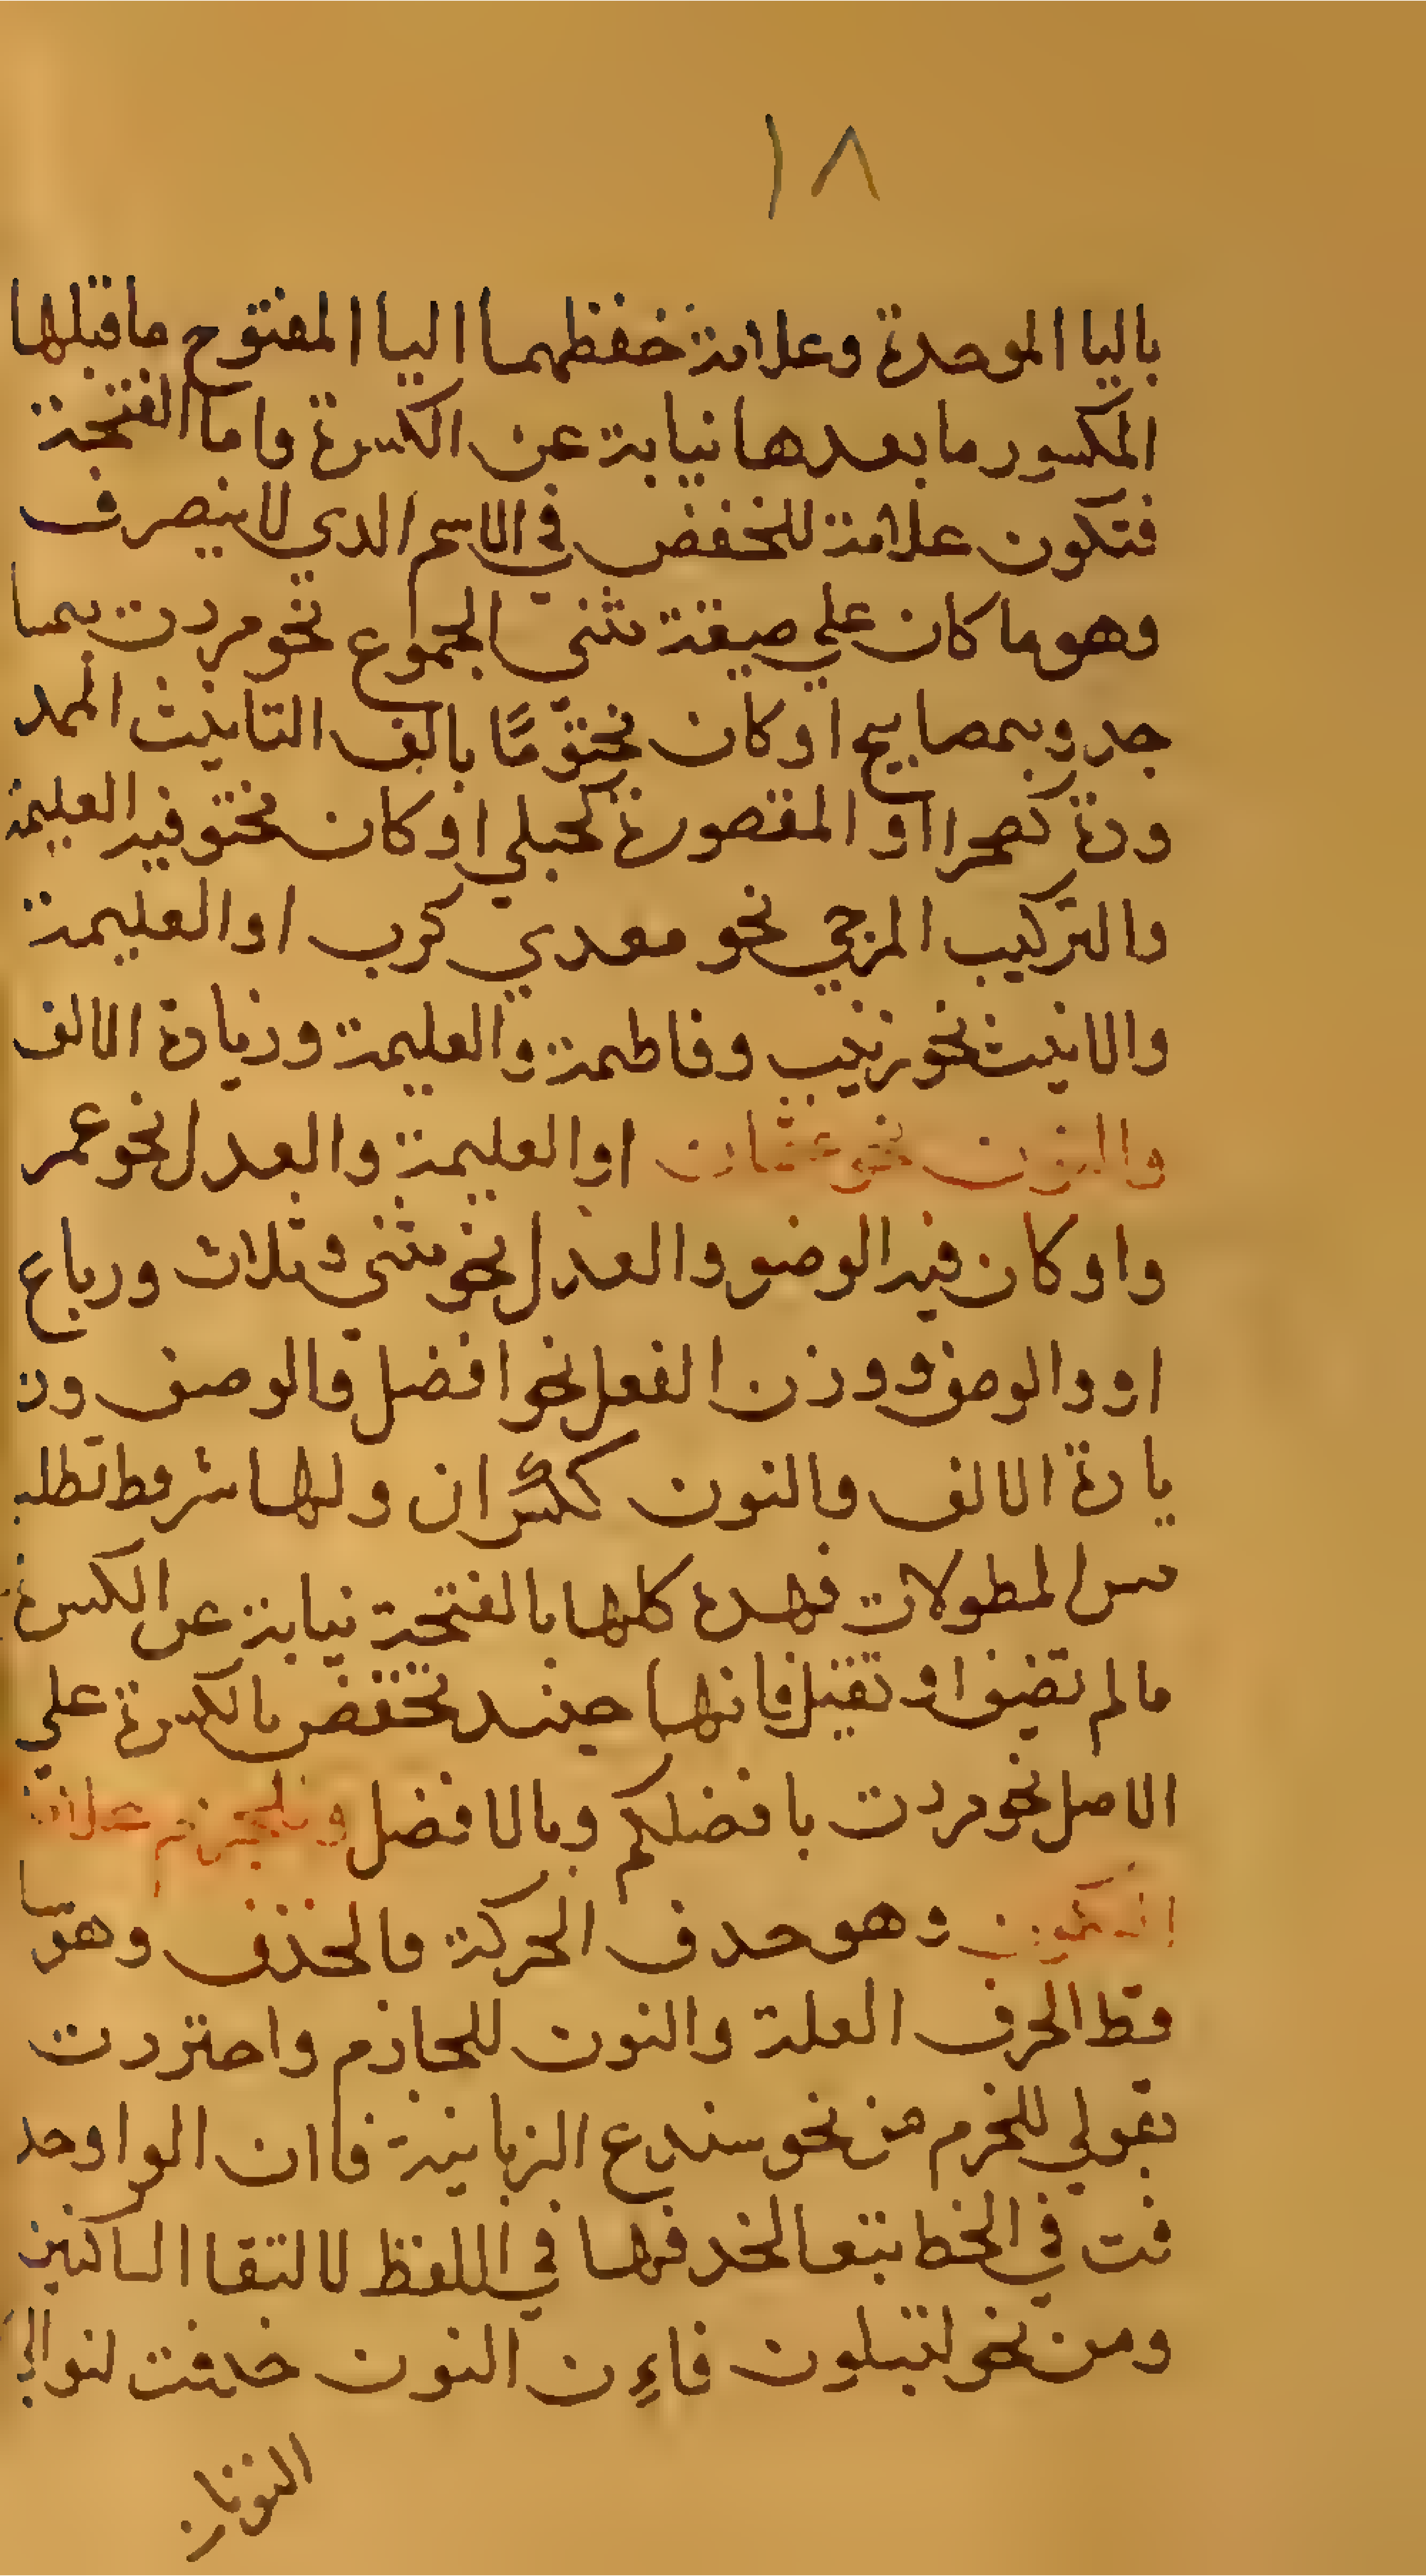 ١٨
باليا الموحدة وعلامة خفظهما اليا المفتوح ماقبلها
المكسور ما بعدها نيابة عن الكسرة واما الفتحة
فتكون علامة للخفض في الاسم الدي لا ينصرف
وهو ما كان علي صيغة مثنى الجموع نحو مردت بمسا
جد وبمصابيح اوكان مختومًا بالف التانيث الممد
ودة كصحرا او المقصورة كحبلي اوكان مختو فيه العليمة
والتركيب المزجي نحو معدي كرب او العليمة
والانيث نحو زينب وفاطمة والعليمة وزيادة الالف
والنون نحو عثمان او العليمة والعدل نحو عمر
واوكان فيه الوضو والعدل نحو مثني وثلاث ورباع
او والوصف ووزن الفعل نحو افضل والوصف وز
يادة الالف والنون ككسران ولها شروط تطلب
من المطولات فهده كلها بالفتحة نيابة عن الكسرة
مالم تضيف او تقتبل فانها حيند تخفض بالكسرة علي
الاصل نحو مردت بافضلكم وبالافضل وللجزم علامة
السكون وهو حدف الحركة والحذف وهو سا
قط الحرف العلة والنون للجازم واحتردت
بقولي للجزم من نحو سندع الزبانية فاان الواوحد
فت في الخط تبتعا لخدفها في اللفظ لالتقا الساكنين
ومن نحو لتبلون فاءِن النون خدفت لتوالي
النونا